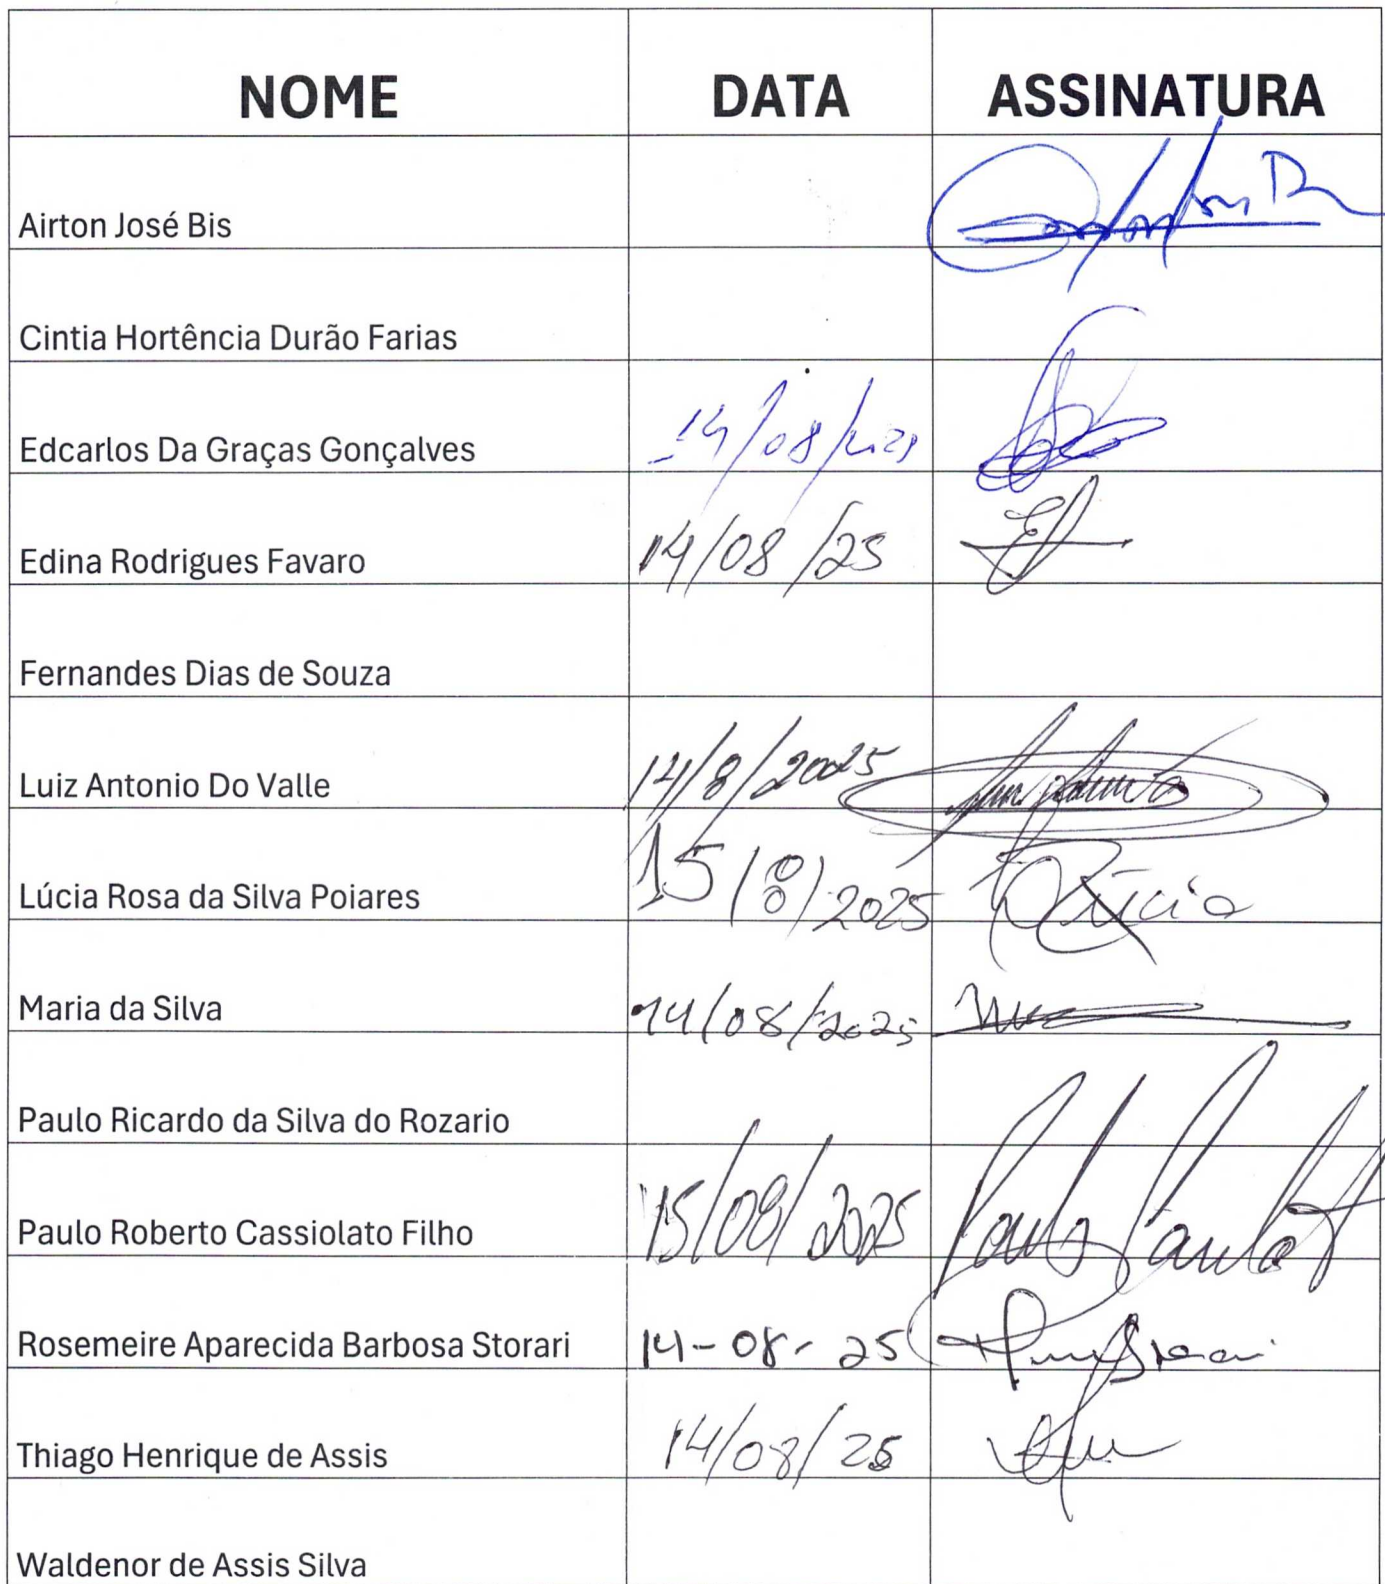 NOME DATA ASSINATURA
Airton José Bis
Cintia Hortência Durão Farias
Edcarlos Da Graças Gonçalves 14/08/2025
Edina Rodrigues Favaro 14/08/25
Fernandes Dias de Souza
Luiz Antonio Do Valle 14/8/2025
Lúcia Rosa da Silva Poiares 15/8/2025 Lúcia
Maria da Silva 14/08/2025
Paulo Ricardo da Silva do Rozario
Paulo Roberto Cassiolato Filho 15/08/2025 Paulo
Rosemeire Aparecida Barbosa Storari 14-08-25
Thiago Henrique de Assis 14/08/25
Waldenor de Assis Silva